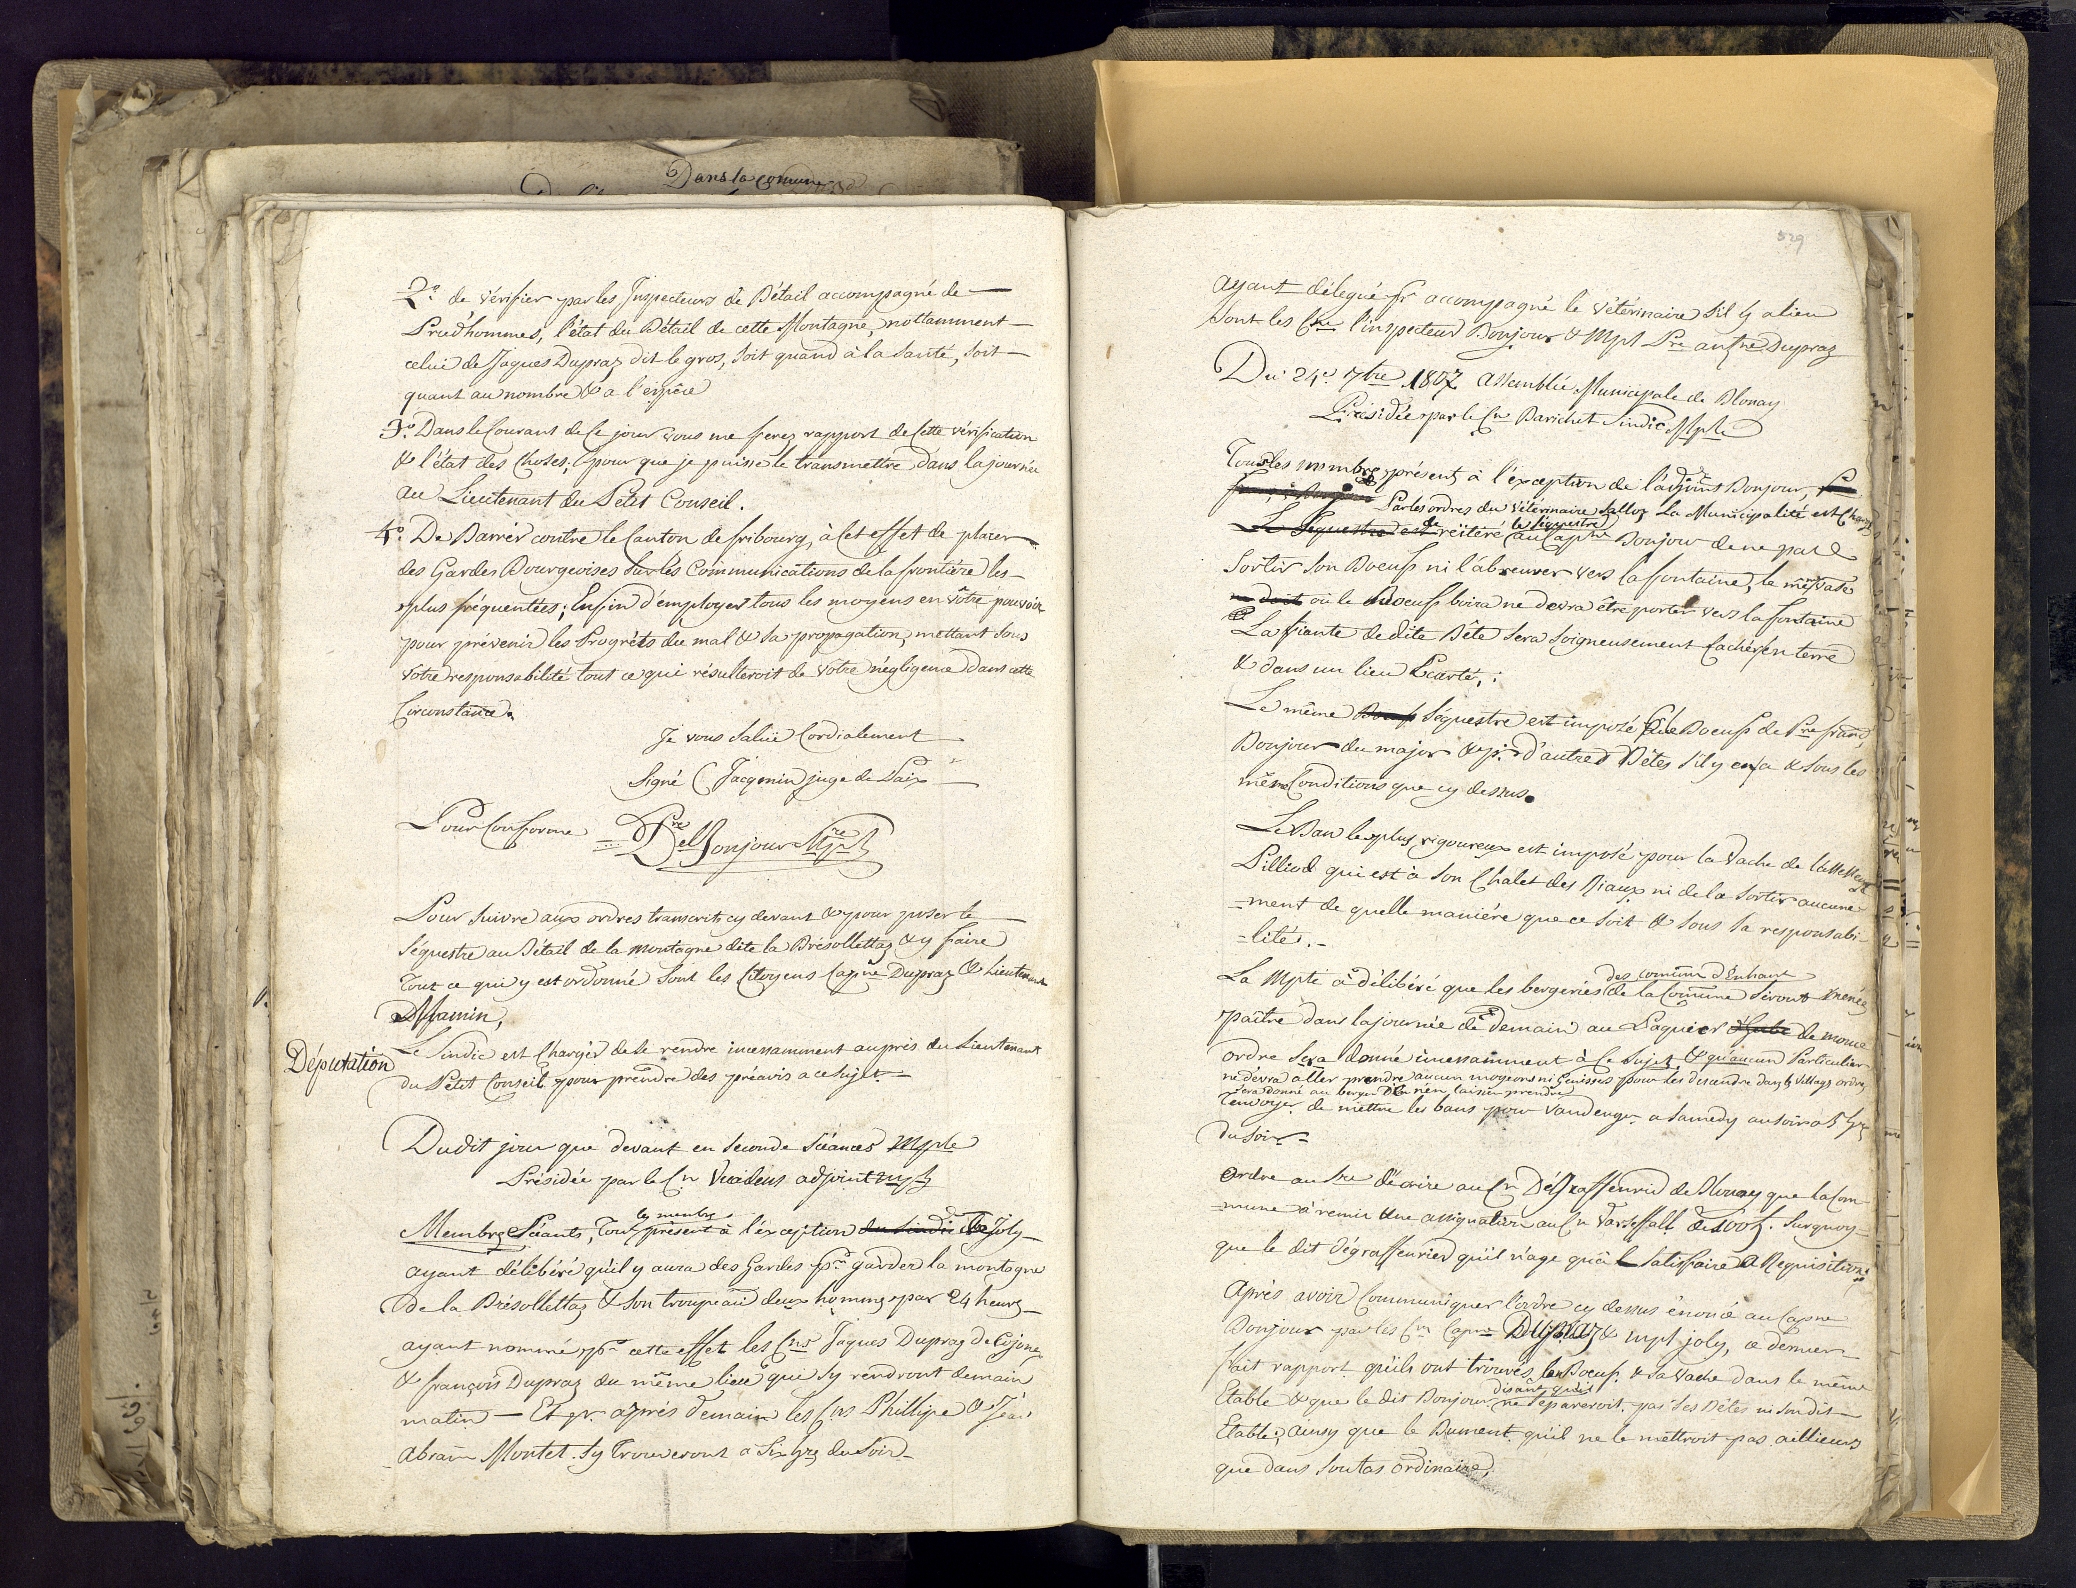 Dans la comune
2.o de vérifier par les Inspecteurs de Bétail accompagné de
Prud'hommes, l'état du Bétail de cette Montagne, nottamment
celui de Jaques Dupraz dit le gros, soit quand à la Santé, soit
quant au nombre & a l'espèce
3.o Dans le Courant de Ce jour vous me ferez rapport de Cette vérification
& l'état des Choses; pour que je puisse le transmettre dans la journée
au Lieutenant du Petit Conseil.
4.o De Barrér contre le Canton de fribourg, à Cet effet de placer
des Gardes Bourgeoises sur les Communications de la frontière les
plus fréquentées; Enfin d'employer tous les moyens en vôtre pouvoir
pour prévenir les Progréts du mal & sa propagation, mettant sous
votre responsabilité tout ce qui résulteroit de votre négligence dans cette
Circonstance.
Je vous Salüe Cordialement
Signé Jaqemin juge de Paix
Pour Conforme
Bonjour
Pour Suivre aux ordres transcrits cy devant & pour poser le
Séquestre au Bétail de la montagne dite la Brésollettaz & y faire
Tout ce qui y est ordonné Sont les Citoyens Capne Dupraz & Lieutenant
Mamin,
Députation
Le Sindic est Chargér de se rendre incessamment auprès du Lieutenant
du Petit Conseil pour prendre des préavis a ce Sujet
Dudit jour que devant en Seconde Séances Mple
Présidée par le Cn Veidens adjoint mpl
Membres Séants, Tous les membres présent à l'éxception du Sindic de Joly
ayant délibéré qu'il y aura des Gardes pr garder la montagne
de la Brésollettaz & son troupeau deux hommes par 24 heures
ayant nommé pr cette effet les Cns Jaques Dupraz de Cojone
& françois Dupraz du même lieu qui Sy rendront demain
matin — Et pr après demain les Cns Phillipe & Jean
Abram Montet Sy Trouveront a Six hres du Soir
529
ayant délegué pr accompagné le vétérinaire S'il y a lieu
Sont les Cns l'inspecteur Bonjour & Mpl Pre Dupraz
Du 24e 7bre 1807 assemblée Municipale de Blonay
Présidée par le Cn Barichet Sindic Mple
Tous les membres présents à l'éxception de l'adjoint Bonjour,
Par les ordres du vétérinaire Salloz La Municipalité est Chargé
Le Séquestre est de réitéré le Séquestre au Capne Bonjour de ne pas
Sortir Son Boeuf ni l'abreuver vers la fontaine, le même vase
ne doit où le Boeuf boira ne devra être porter vers la fontaine
La fiante de dite Bête Sera Soigneusement Cachée en terre
& dans un lieu Ecarté,
Le même Boeuf Séquestre est imposé Boeuf de Pre franç
Bonjour du major & pr d'autres Bêtes s'il y en a & Sous les
même Conditions que cy dessus.
Le Ban le plus rigoureux est imposé pour la vache de l'assesseur
Pilliod qui est a Son Chalet des Riaux ni de la Sortir aucune
ment de quelle maniére que ce Soit & Sous Sa responsabi
lité.
La Mpte à délibéré que les bergeries des comuns d'Enhaut de la Comune Seront menée
paître dans la journée de demain au Paquier de
ordre Sera donné incessamment à Ce Sujet & qu'aucun Particulier
ne devra aller prendre aucun mogeons ni Genisses pour les descendre dans les Villages ordre
Sera donné au berger De n'en laisser prendre
renvoyer de mettre les bans pour vandenger a Samedy au soir a 5 hres
du Soir
ordre au Sre d'écrire au Cn Dégraffenried de Blonay que la Com
mune à remis Une assignation au Cn de 100 fr. Surquoy
que le dit dégraffenried qu'il n'age qu'à Satisfaire a Requisitions
Après avoir Communiquer l'ordre cy dessus énoncé au Capne
Bonjour par les Cns Capne Dupraz & mpl joly, a dernier
fait rapport qu'ils ont trouvés, le Boeuf & Sa Vache dans le même
Etable & que le dit Bonjour disant qu'il ne Separeroit pas Ses Bêtes ni Sondit
Etable; ainsy que le Bument qu'il ne le mettroit pas aillieurs
que dans Son tas ordinaire,